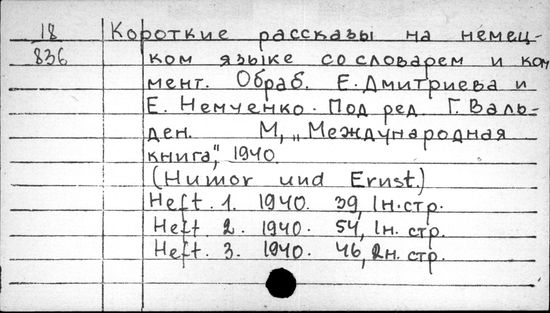 18 Короткие рассказы на немец-
836 ком языке со словарем и ком
мент. Обраб. Е. Дмитриева и
Е. Немченко. Под ред. Г. Валь-
ден. М, „Международная
книга", 1940.
(Humor und Ernst.)
Heft. 1. 1940. 39, 1н.стр.
Heft 2. 1940. 54, 1н. стр.
Heft. 3. 1940. 46, 2н. стр.